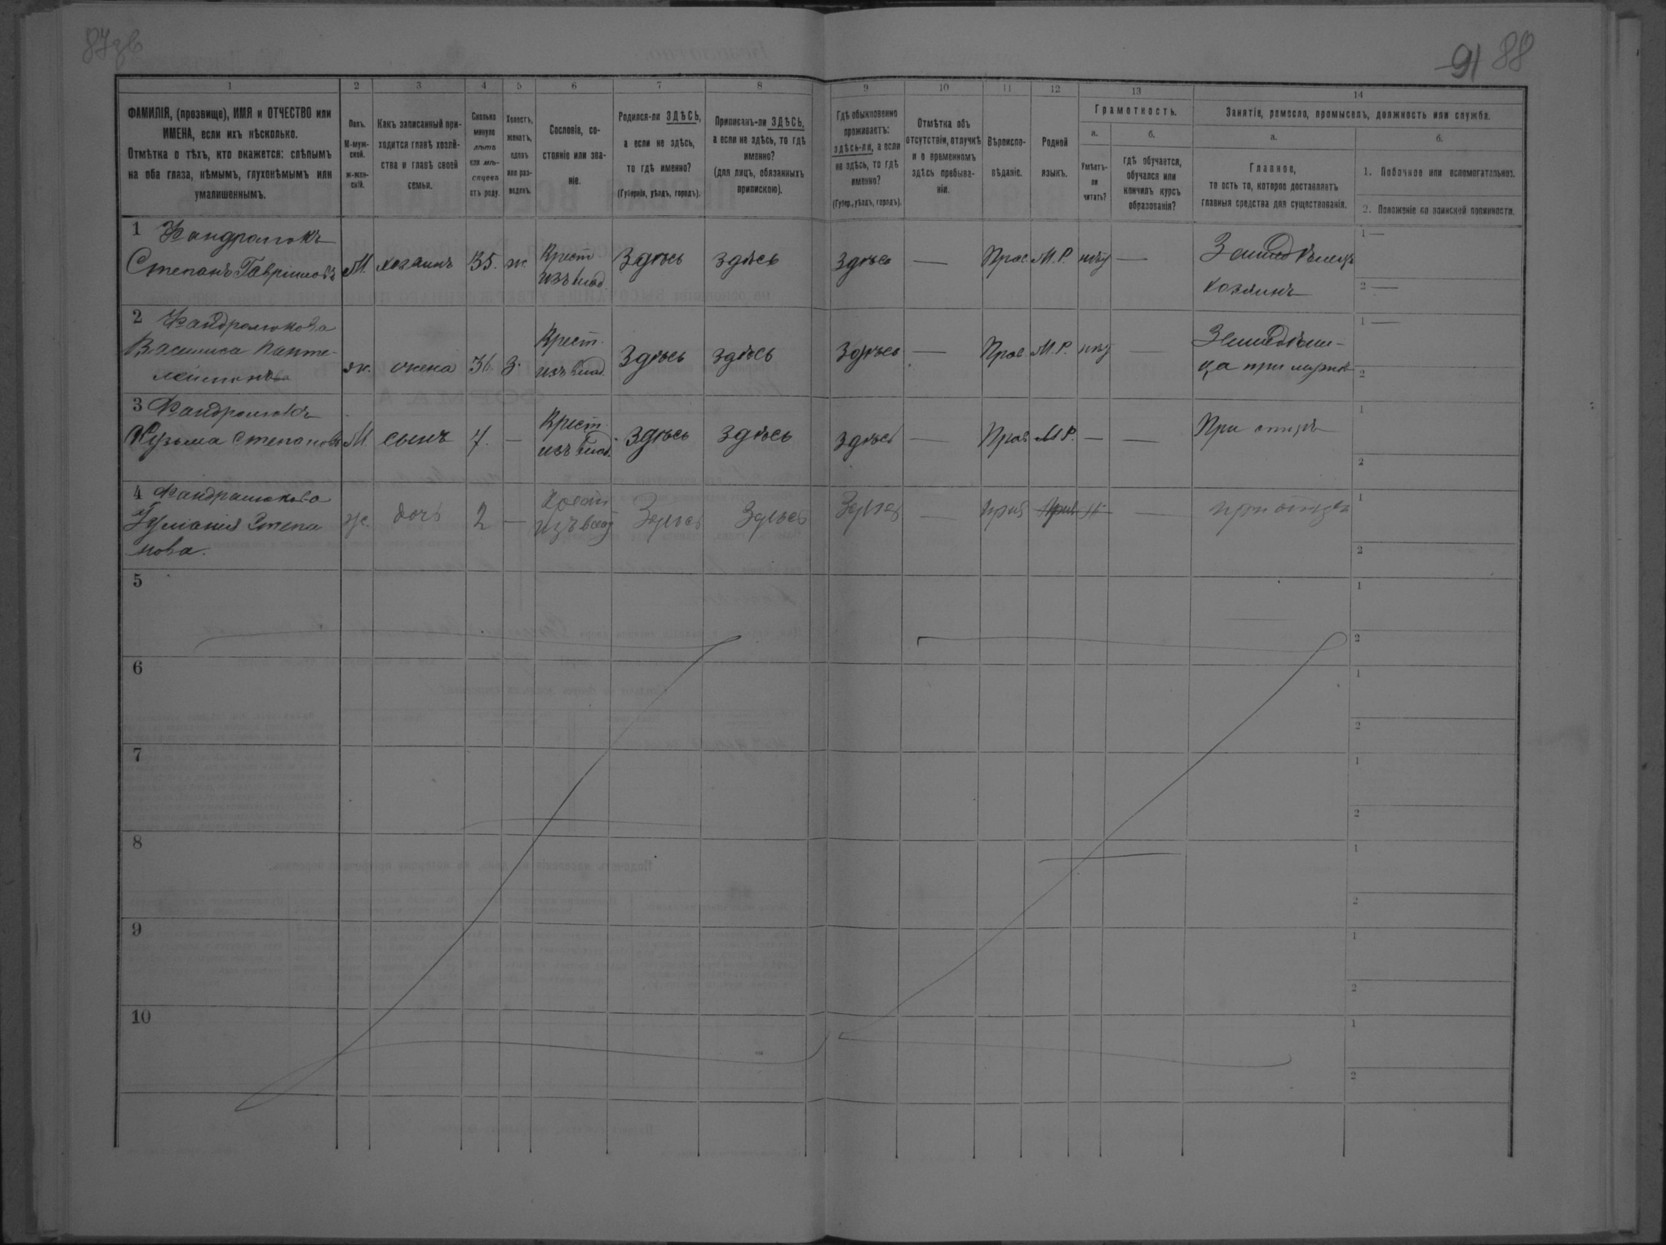 91 88
1 2 3 4 5 6 7 8 9 10 11 12 13 14
ФАМИЛІЯ, (прозвище), ИМЯ и ОТЧЕСТВО или
ИМЕНА, если ихъ нѣсколько.
Отмѣтка о тѣхъ, кто окажется: слѣпымъ
на оба глаза, нѣмымъ, глухонѣмымъ или
умалишеннымъ.
Полъ.
М-муж-
ской.
ж-жен-
скій.
Какъ записанный при-
ходится главѣ хозяй-
ства и главѣ своей
семьи.
Сколько
минуло
лѣтъ
или мѣ-
сяцевъ
отъ роду.
Холостъ,
женатъ,
вдовъ
или раз-
веденъ.
Сословіе, со-
стояніе или зва-
ніе.
Родился-ли ЗДѢСЬ,
а если не здѣсь,
то гдѣ именно?
(Губернія, уѣздъ, городъ).
Приписанъ-ли ЗДѢСЬ,
а если не здѣсь, то гдѣ
именно?
(для лицъ, обязанныхъ
припискою).
Гдѣ обыкновенно
проживаетъ:
здѣсь-ли, а если
не здѣсь, то гдѣ
именно?
(Губер., уѣздъ, городъ).
Отмѣтка объ
отсутствіи, отлучкѣ
и о временномъ
здѣсь пребыва-
ніи.
Вѣроиспо-
вѣданіе.
Родной
языкъ.
Грамотность.
а.
Умѣетъ-
ли
читать?
б.
гдѣ обучается,
обучался или
кончилъ курсъ
образованія?
Занятіе, ремесло, промыселъ, должность или служба.
а.
Главное,
то есть то, которое доставляетъ
главныя средства для существованія.
б.
1. Побочное или вспомогательное.
2. Положеніе по воинской повинности.
1
Степанъ Гавриловъ
М хозяинъ 35. ж
Крест
изъ влад.
Здѣсь здѣсь здѣсь — Прав М.Р. нѣту —
хозяинъ
1 —
2 —
2
Василиса Панте-
ж. жена 36 з.
Крест.
изъ влад.
Здѣсь здѣсь Здѣсь — Прав М.Р. нѣту —
ца при мужѣ
1 —
2
3
Кузьма Степановъ
М. сынъ 7. —
Крест.
изъ влад.
Здѣсь здѣсь здѣсь — Прав М.Р. — —
При отцѣ
1
2
4
Степа
нова.
ж. дочь 2 —
Здѣсь Здѣсь Здѣсь — —
при отцѣ
1
2
5
1
2
6
1
2
7
1
2
8
1
2
9
1
2
10
1
2